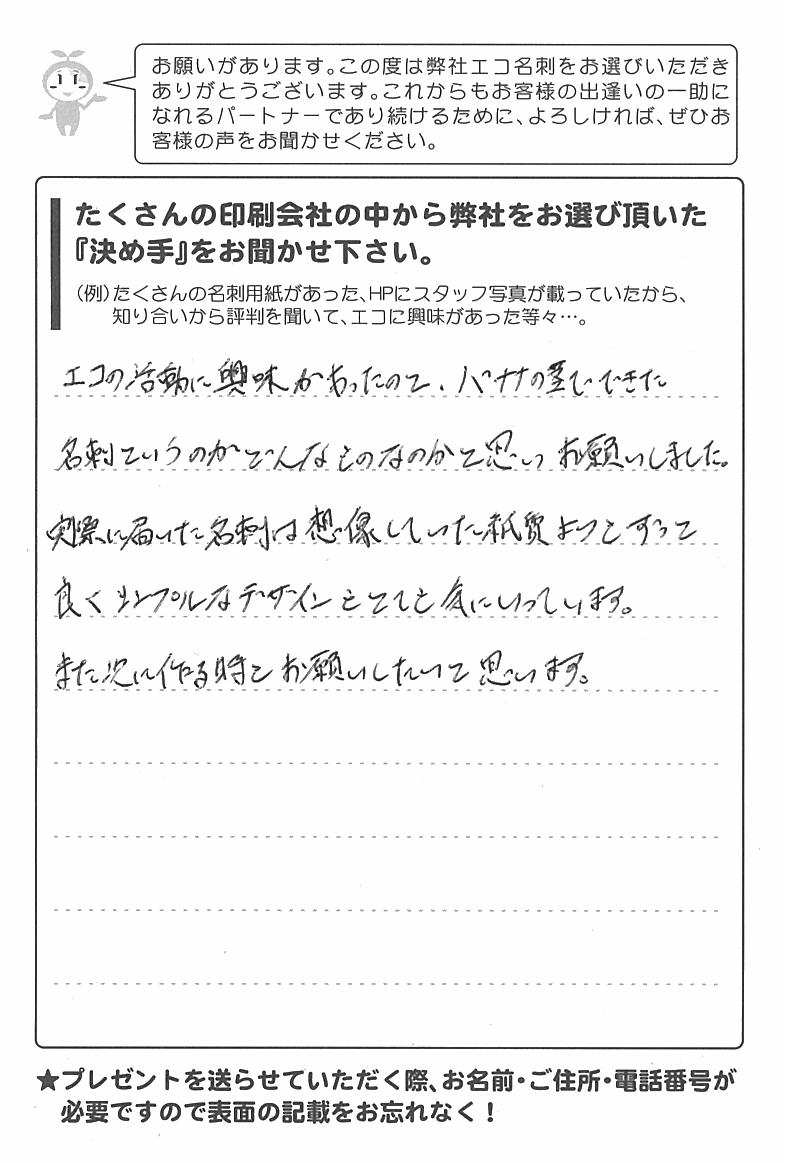 お願いがあります。この度は弊社エコ名刺をお選びいただき
ありがとうございます。これからもお客様の出逢いの一助に
なれるパートナーであり続けるために、よろしければ、ぜひお
客様の声をお聞かせください。
たくさんの印刷会社の中から弊社をお選び頂いた
『決め手』をお聞かせ下さい。
(例)たくさんの名刺用紙があった、HPにスタッフ写真が載っていたから、
知り合いから評判を聞いて、エコに興味があった等々…。
エコの活動に興味があったのと、バナナの茎でできた
名刺というのがどんなものなのかと思いお願いしました。
実際に届いた名刺は想像していた紙質よりもずっと
良くシンプルなデザインもとても気にいっています。
また次に作る時もお願いしたいと思います。
★プレゼントを送らせていただく際、お名前・ご住所・電話番号が
必要ですので表面の記載をお忘れなく!